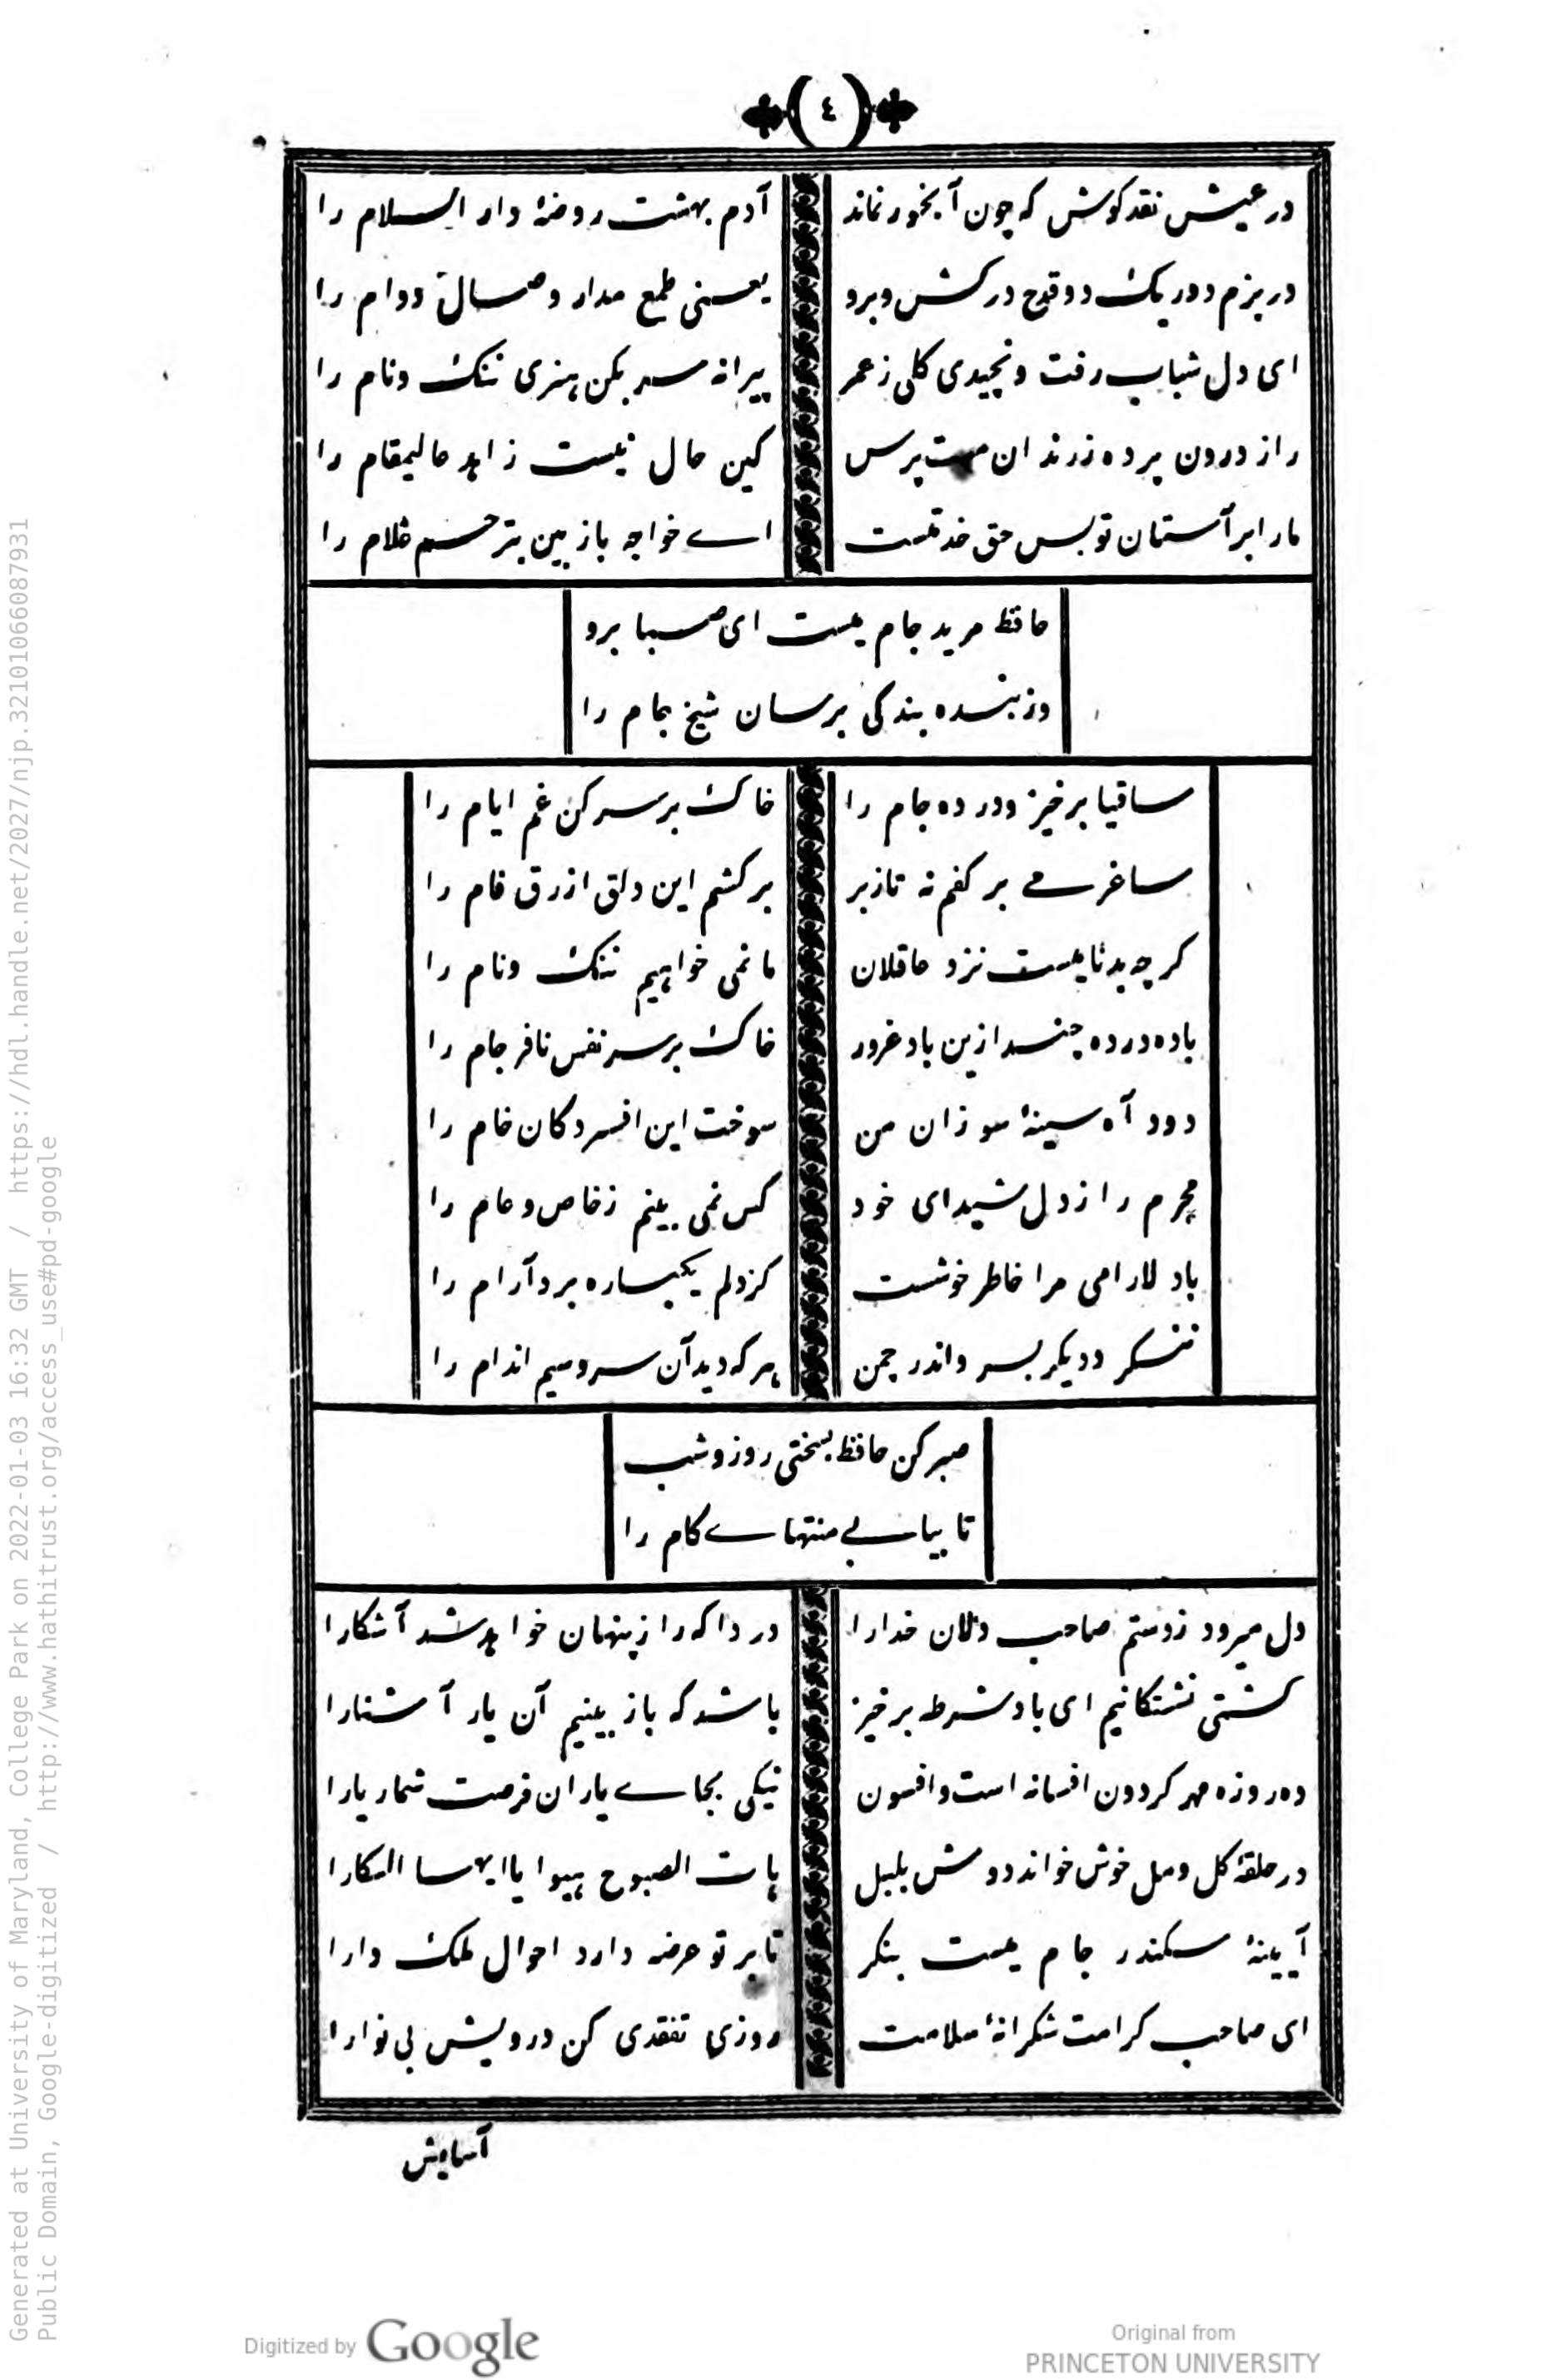 ٤
در عیش نقد کوش که چون آبخور نماند
آدم بهشت روضهٔ دار السلام را
در بزم دور یک دو قدح درکش وبرو
یعنی طمع مدار وصال دوام را
ای دل شباب رفت و نچیدی کلی زعمر
پیرانه سر بکن هنری ننک ونام را
راز درون پرده زرندان مست پرس
کین حال نیست زاهد عالیمقام را
مارا برآستان تو بس حق خدمتست
اے خواجه باز بین بترحم غلام را
حافظ مرید جام میست ای صبا برو
وز بنده بندکی برسان شیخ جام را
ساقیا برخیز ودر ده جام را
خاک بر سر کن غم ایام را
ساغر مے بر کفم نه تا زبر
بر کشم این دلق ازرق فام را
کرچه بدنامیست نزد عاقلان
ما نمی خواهیم ننک ونام را
باده درده چند ازین باد غرور
خاک بر سر نفس نافرجام را
دود آه سینهٔ سوزان من
سوخت این افسردکان خام را
محرم راز دل شیدای خود
کس نمی بینم زخاص و عام را
باد لارامی مرا خاطر خوشست
کزدلم یکباره برد آرام را
ننکرد دیکر بسر واندر چمن
هر که دید آن سرو سیم اندام را
صبر کن حافظ بسختی روز وشب
تا بیابے منتهاے کام را
دل میرود زدستم صاحب دلان خدارا
دردا که راز پنهان خواهد شد آشکارا
کشتی نشتکانیم ای باد شرطه برخیز
باشد که باز بینیم آن یار آشنارا
ده روزه مهر کردون افسانه است وافسون
نیکی بجاے یاران فرصت شمار یارا
در حلقهٔ کل ومل خوش خواند دوش بلبل
هات الصبوح هیوا یا ایها السکارا
آیینهٔ سکندر جام میست بنکر
تا بر تو عرضه دارد احوال ملک دارا
ای صاحب کرامت شکرانهٔ سلامت
روزی تفقدی کن درویش بی نوارا
آسایش
Generated at University of Maryland, College Park on 2022-01-03 16:32 GMT / https://hdl.handle.net/2027/njp.32101066087931
Public Domain, Google-digitized / http://www.hathitrust.org/access_use#pd-google
Digitized by Google
Original from
PRINCETON UNIVERSITY